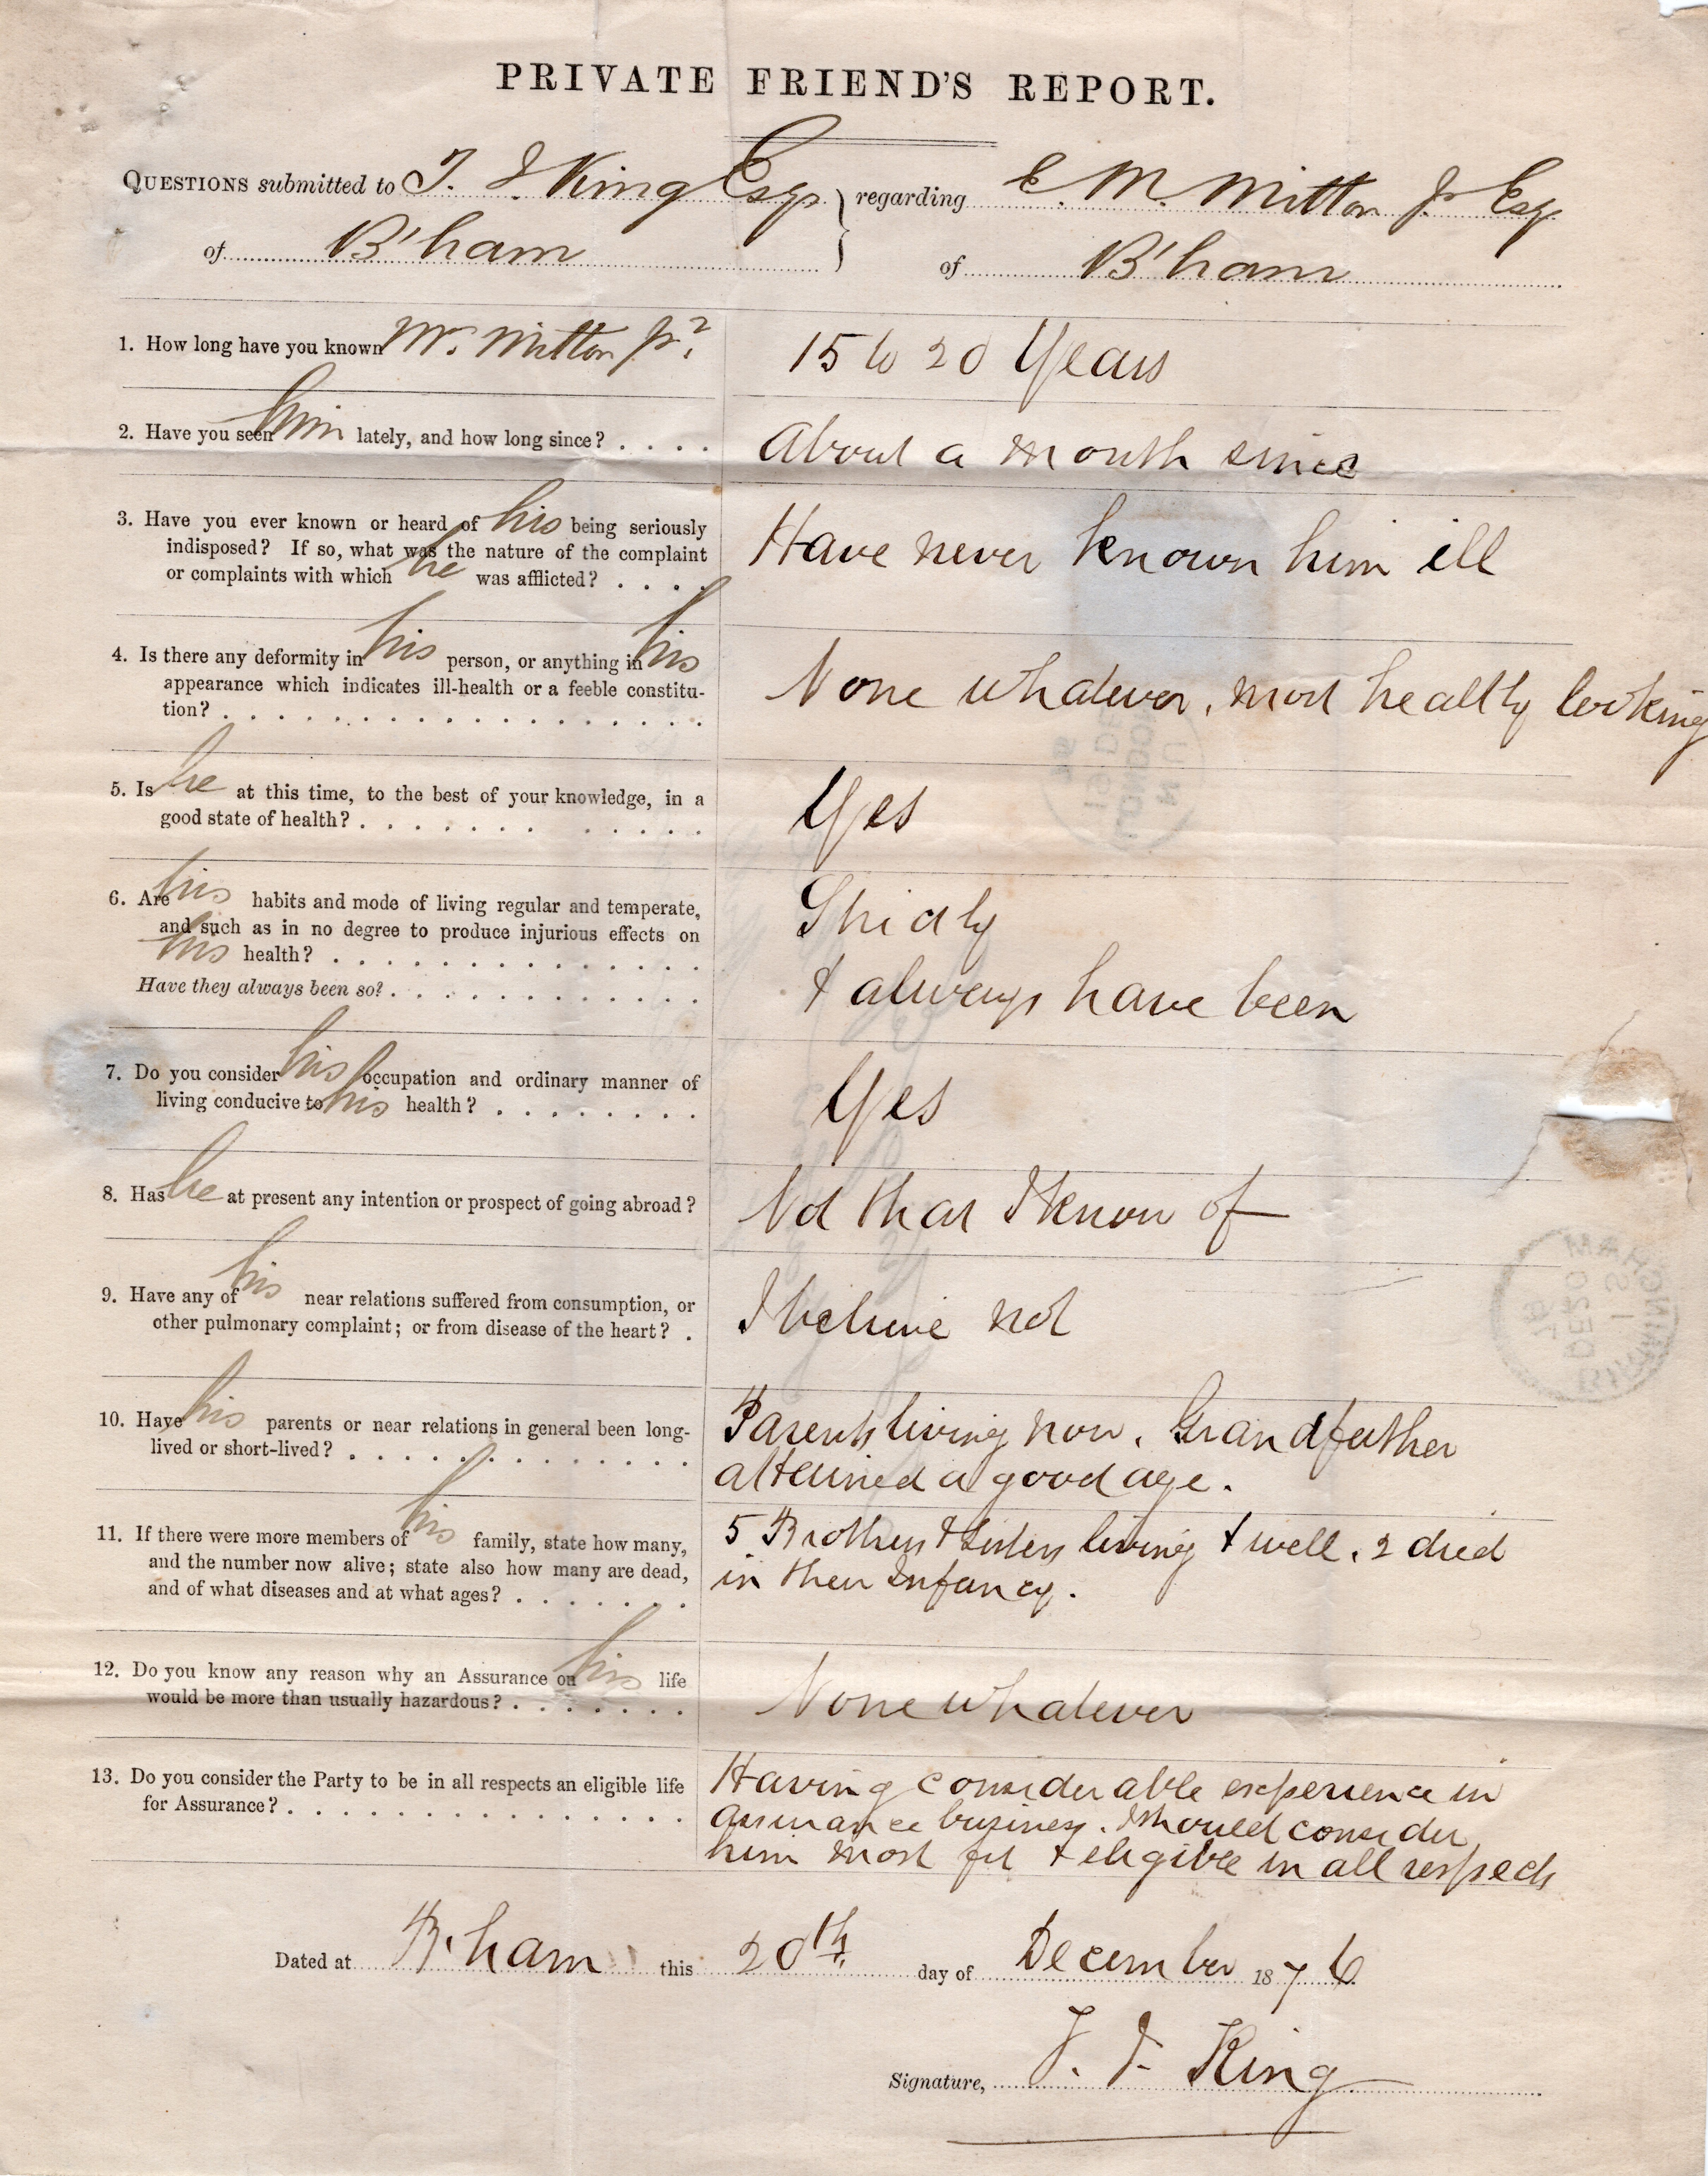 PRIVATE FRIEND'S REPORT.
QUESTIONS submitted to T. J King Esqr } regarding E. M. Mitton Jr Esq
of B'ham of B'ham
1. How long have you known Mr. Mitton Jr?
15 to 20 Years
2. Have you seen him lately, and how long since? . . . .
About a month since
3. Have you ever known or heard of his being seriously
indisposed? If so, what was the nature of the complaint
or complaints with which he was afflicted? . . . .
Have never known him ill
4. Is there any deformity in his person, or anything in his
appearance which indicates ill-health or a feeble constitu-
tion? . . . . . . . . . . . . . . . . . .
None whatever, most healthy looking
5. Is he at this time, to the best of your knowledge, in a
good state of health? . . . . . . . . . . . .
Yes
6. Are his habits and mode of living regular and temperate,
and such as in no degree to produce injurious effects on
his health? . . . . . . . . . . . . . .
Have they always been so? . . . . . . . . . . . .
Strictly
& always have been
7. Do you consider his occupation and ordinary manner of
living conducive to his health? . . . . . . . .
Yes
8. Has he at present any intention or prospect of going abroad?
Not that I know of
9. Have any of his near relations suffered from consumption, or
other pulmonary complaint; or from disease of the heart? .
I believe not
10. Have his parents or near relations in general been long-
lived or short-lived? . . . . . . . . . . . . .
Parents living now. Grandfather
attained a good age.
11. If there were more members of his family, state how many,
and the number now alive; state also how many are dead,
and of what diseases and at what ages? . . . . . . .
5 Brothers & Sisters living & well. 2 died
in their Infancy.
12. Do you know any reason why an Assurance on his life
would be more than usually hazardous? . . . . . . .
None whatever
13. Do you consider the Party to be in all respects an eligible life
for Assurance? . . . . . . . . . . . . . . .
Having considerable experience in
assurance business. I should consider
him most fit & eligible in all respects
Dated at B'ham this 20th. day of December 1876
Signature, T. J. King
BIRMINGHAM
1 S
DE 20
76